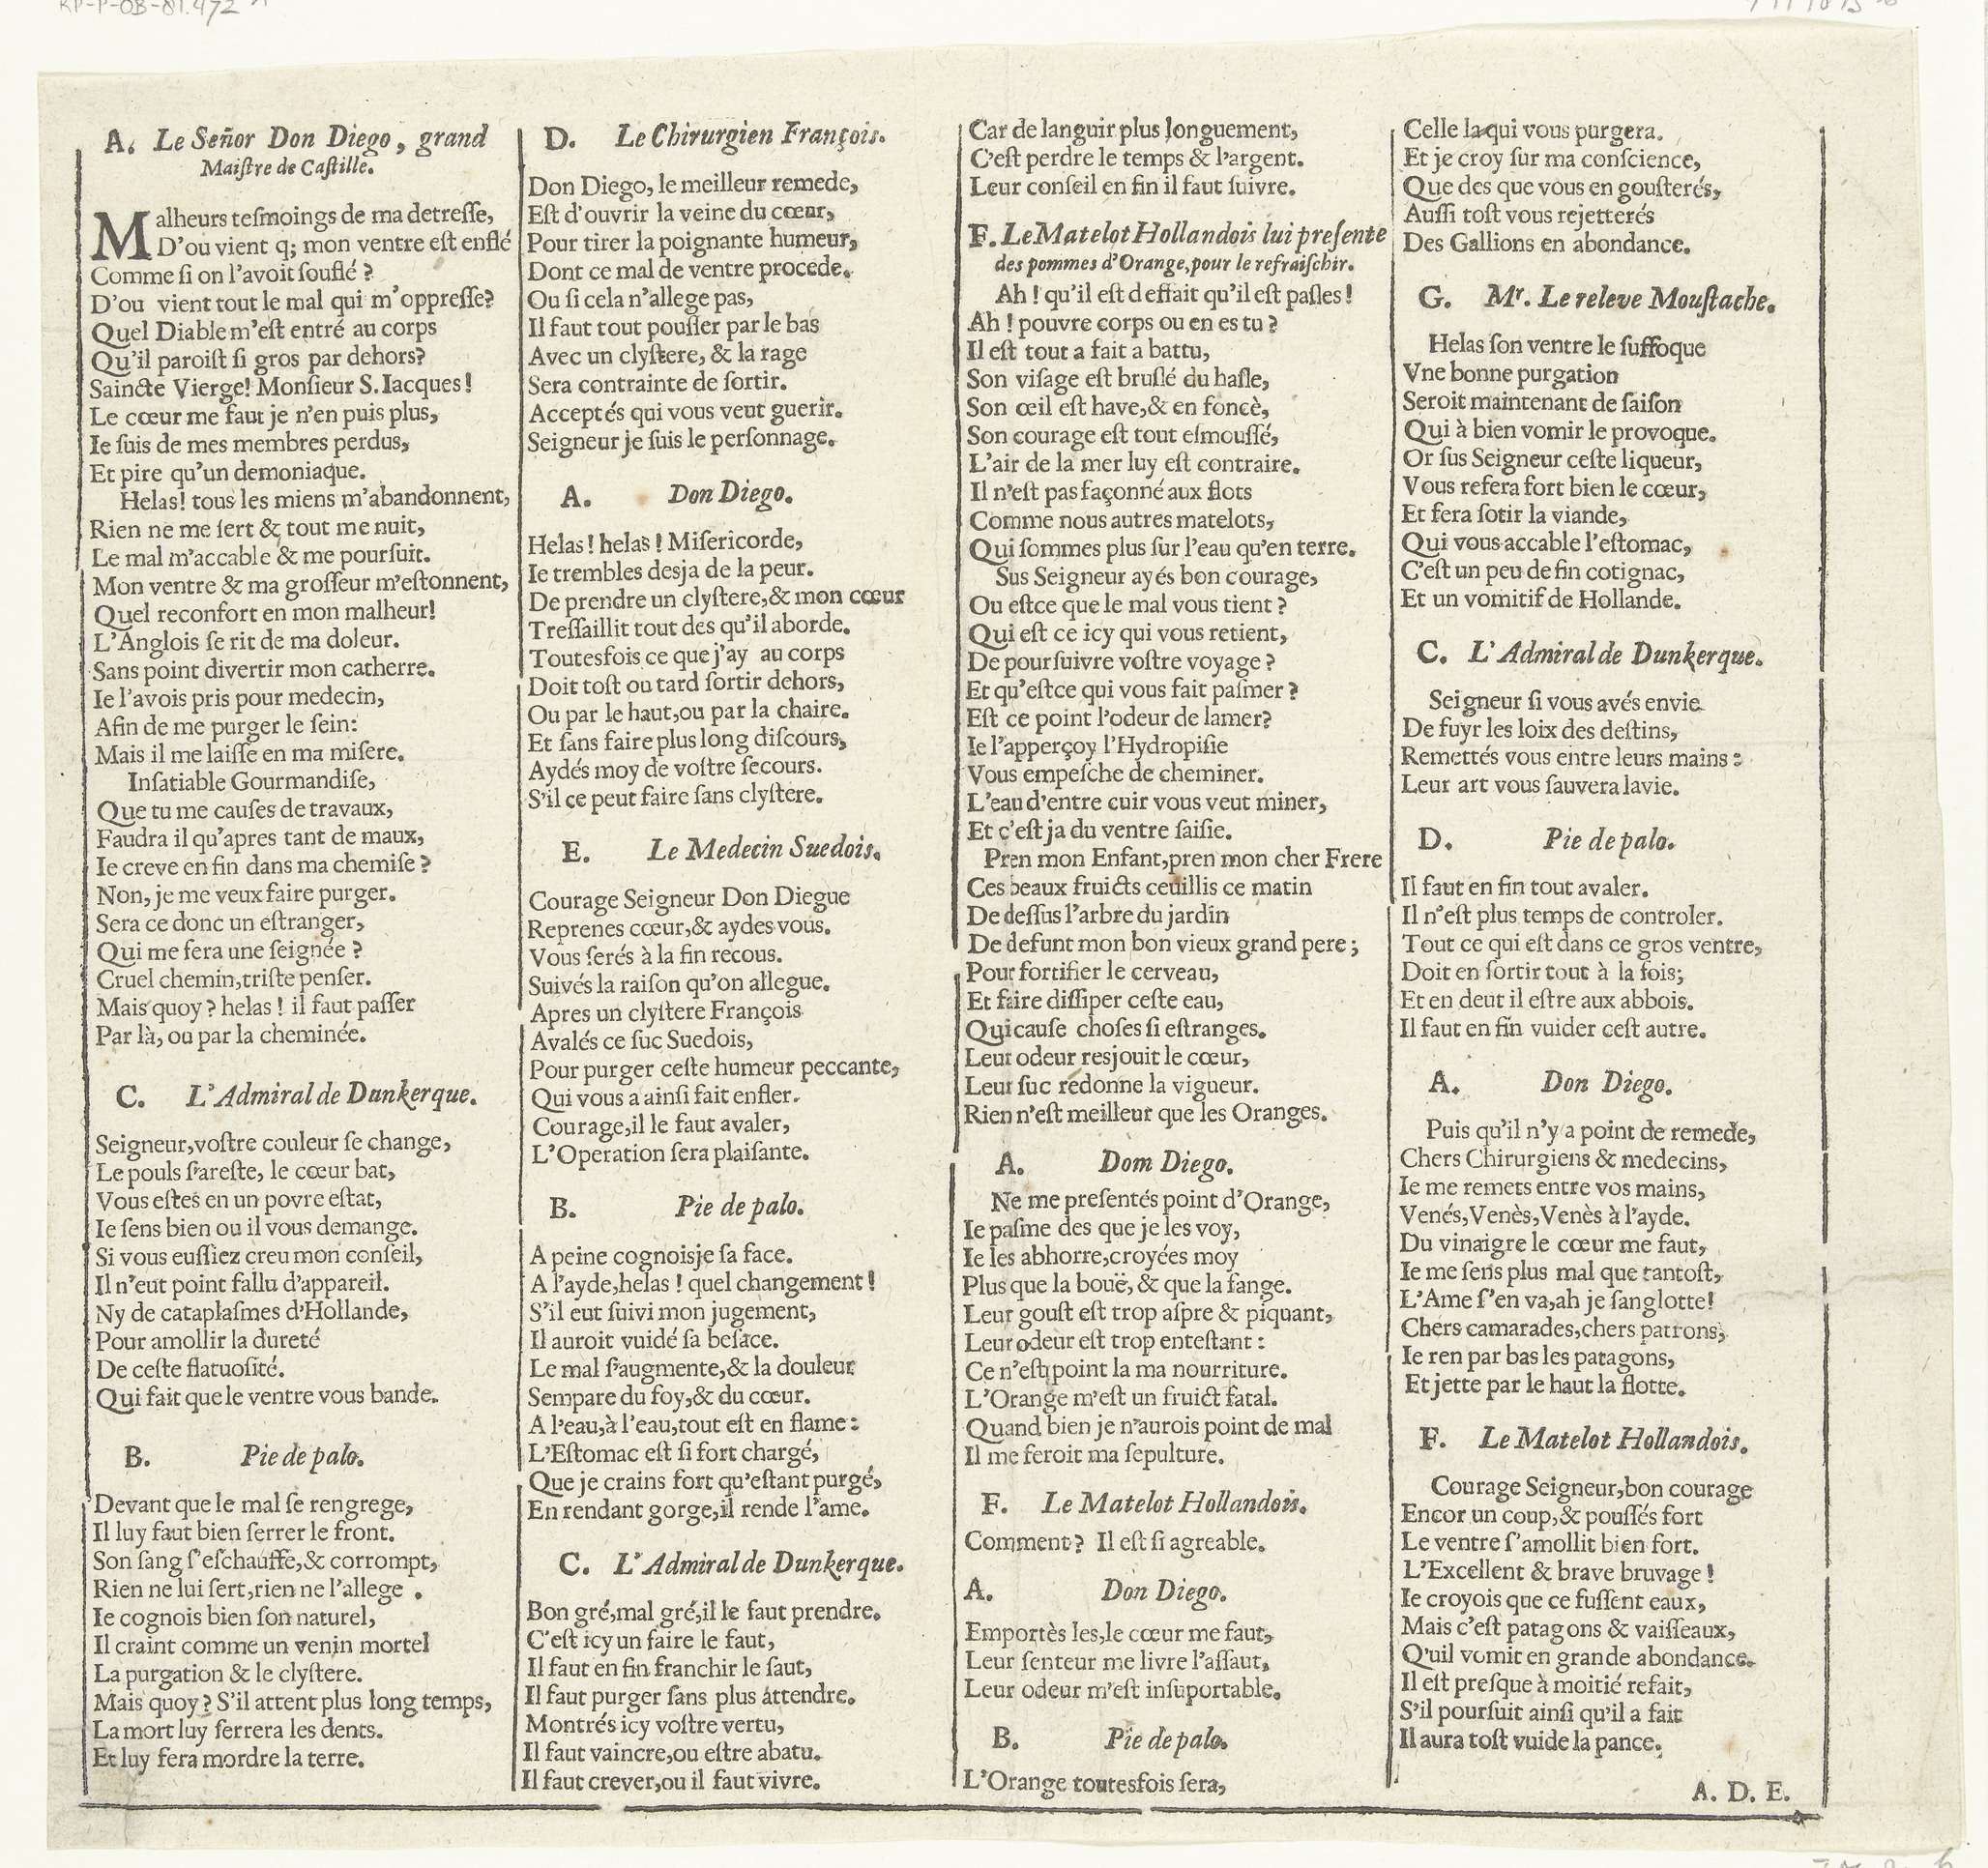 RP-P-OB-81.472 A
A. Le Señor Don Diego, grand
Maiſtre de Caſtille.
Malheurs teſmoings de ma detreſſe,
D'ou vient q; mon ventre eſt enflé
Comme ſi on l'avoit ſouflé?
D'ou vient tout le mal qui m'oppreſſe?
Quel Diable m'eſt entré au corps
Qu'il paroiſt ſi gros par dehors?
Saincte Vierge! Monſieur S. Iacques!
Le cœur me faut je n'en puis plus,
Ie ſuis de mes membres perdus,
Et pire qu'un demoniaque.
Helas! tous les miens m'abandonnent,
Rien ne me ſert & tout me nuit,
Le mal m'accable & me pourſuit.
Mon ventre & ma groſſeur m'eſtonnent,
Quel reconfort en mon malheur!
L'Anglois ſe rit de ma doleur.
Sans point divertir mon catherre.
Ie l'avois pris pour medecin,
Afin de me purger le ſein:
Mais il me laiſſe en ma miſere.
Inſatiable Gourmandiſe,
Que tu me cauſes de travaux,
Faudra il qu'apres tant de maux,
Ie creve en fin dans ma chemiſe?
Non, je me veux faire purger.
Sera ce donc un eſtranger,
Qui me fera une ſeignée?
Cruel chemin, triſte penſer.
Mais quoy? helas! il faut paſſer
Par là, ou par la cheminée.
C. L'Admiral de Dunkerque.
Seigneur, voſtre couleur ſe change,
Le pouls ſ'areſte, le cœur bat,
Vous eſtes en un povre eſtat,
Ie ſens bien ou il vous demange.
Si vous euſſiez creu mon conſeil,
Il n'eut point fallu d'appareil.
Ny de cataplaſmes d'Hollande,
Pour amollir la dureté
De ceſte flatuoſité.
Qui fait que le ventre vous bande.
B. Pie de palo.
Devant que le mal ſe rengrege,
Il luy faut bien ſerrer le front.
Son ſang ſ'eſchauffe, & corrompt,
Rien ne lui ſert, rien ne l'allege.
Ie cognois bien ſon naturel,
Il craint comme un venin mortel
La purgation & le clyſtere.
Mais quoy? S'il attent plus long temps,
La mort luy ſerrera les dents.
Et luy fera mordre la terre.
D. Le Chirurgien François.
Don Diego, le meilleur remede,
Eſt d'ouvrir la veine du cœur,
Pour tirer la poignante humeur,
Dont ce mal de ventre procede.
Ou ſi cela n'allege pas,
Il faut tout pouſſer par le bas
Avec un clyſtere, & la rage
Sera contrainte de ſortir.
Acceptés qui vous veut guerir.
Seigneur je ſuis le perſonnage.
A. Don Diego.
Helas! helas! Miſericorde,
Ie trembles desja de la peur.
De prendre un clyſtere, & mon cœur
Treſſaillit tout des qu'il aborde.
Toutesfois ce que j'ay au corps
Doit toſt ou tard ſortir dehors,
Ou par le haut, ou par la chaire.
Et ſans faire plus long diſcours,
Aydés moy de voſtre ſecours.
S'il ce peut faire ſans clyſtere.
E. Le Medecin Suedois.
Courage Seigneur Don Diegue
Reprenes cœur, & aydes vous.
Vous ſerés à la fin recous.
Suivés la raiſon qu'on allegue.
Apres un clyſtere François
Avalés ce ſuc Suedois,
Pour purger ceſte humeur peccante,
Qui vous a ainſi fait enfler.
Courage, il le faut avaler,
L'Operation ſera plaiſante.
B. Pie de palo.
A peine cognoisje ſa face.
A l'ayde, helas! quel changement!
S'il eut ſuivi mon jugement,
Il auroit vuidé ſa beſace.
Le mal ſ'augmente, & la douleur
Sempare du foy, & du cœur.
A l'eau, à l'eau, tout eſt en flame:
L'Eſtomac eſt ſi fort chargé,
Que je crains fort qu'eſtant purgé,
En rendant gorge, il rende l'ame.
C. L'Admiral de Dunkerque.
Bon gré, mal gré, il le faut prendre.
C'eſt icy un faire le faut,
Il faut en fin franchir le ſaut,
Il faut purger ſans plus attendre.
Montrés icy voſtre vertu,
Il faut vaincre, ou eſtre abatu.
Il faut crever, ou il faut vivre.
Car de languir plus longuement,
C'eſt perdre le temps & l'argent.
Leur conſeil en fin il faut ſuivre.
F. Le Matelot Hollandois lui preſente
des pommes d'Orange, pour le refraiſchir.
Ah! qu'il eſt deffait qu'il eſt paſles!
Ah! pouvre corps ou en es tu?
Il eſt tout a fait a battu,
Son viſage eſt bruſlé du haſle,
Son œil eſt have, & en foncè,
Son courage eſt tout eſmouſſé,
L'air de la mer luy eſt contraire.
Il n'eſt pas façonné aux flots
Comme nous autres matelots,
Qui ſommes plus ſur l'eau qu'en terre.
Sus Seigneur ayés bon courage,
Ou eſtce que le mal vous tient?
Qui eſt ce icy qui vous retient,
De pourſuivre voſtre voyage?
Et qu'eſtce qui vous fait paſmer?
Eſt ce point l'odeur de lamer?
Ie l'apperçoy l'Hydropiſie
Vous empeſche de cheminer.
L'eau d'entre cuir vous veut miner,
Et c'eſt ja du ventre ſaiſie.
Pren mon Enfant, pren mon cher Frere
Ces beaux fruicts ceuillis ce matin
De deſſus l'arbre du jardin
De defunt mon bon vieux grand pere;
Pour fortifier le cerveau,
Et faire diſſiper ceſte eau,
Qui cauſe choſes ſi eſtranges.
Leur odeur resjouit le cœur,
Leur ſuc redonne la vigueur.
Rien n'eſt meilleur que les Oranges.
A. Dom Diego.
Ne me preſentés point d'Orange,
Ie paſme des que je les voy,
Ie les abhorre, croyées moy
Plus que la bouë, & que la fange.
Leur gouſt eſt trop aſpre & piquant,
Leur odeur eſt trop enteſtant:
Ce n'eſt point la ma nourriture.
L'Orange m'eſt un fruict fatal.
Quand bien je n'aurois point de mal
Il me feroit ma ſepulture.
F. Le Matelot Hollandois.
Comment? Il eſt ſi agreable.
A. Don Diego.
Emportès les, le cœur me faut,
Leur ſenteur me livre l'aſſaut,
Leur odeur m'eſt inſuportable.
B. Pie de palo.
L'Orange toutesfois ſera,
Celle la qui vous purgera.
Et je croy ſur ma conſcience,
Que des que vous en gouſterés,
Auſſi toſt vous rejetterés
Des Gallions en abondance.
G. Mr. Le releve Mouſtache.
Helas ſon ventre le ſuffoque
Vne bonne purgation
Seroit maintenant de ſaiſon
Qui à bien vomir le provoque.
Or ſus Seigneur ceſte liqueur,
Vous refera fort bien le cœur,
Et fera ſotir la viande,
Qui vous accable l'eſtomac,
C'eſt un peu de fin cotignac,
Et un vomitif de Hollande.
C. L'Admiral de Dunkerque.
Seigneur ſi vous avés envie
De fuyr les loix des deſtins,
Remettés vous entre leurs mains:
Leur art vous ſauvera lavie.
D. Pie de palo.
Il faut en fin tout avaler.
Il n'eſt plus temps de controler.
Tout ce qui eſt dans ce gros ventre,
Doit en ſortir tout à la fois;
Et en deut il eſtre aux abbois.
Il faut en fin vuider ceſt autre.
A. Don Diego.
Puis qu'il n'y a point de remede,
Chers Chirurgiens & medecins,
Ie me remets entre vos mains,
Venés, Venès, Venès à l'ayde.
Du vinaigre le cœur me faut,
Ie me ſens plus mal que tantoſt,
L'Ame ſ'en va, ah je ſanglotte!
Chers camarades, chers patrons,
Ie ren par bas les patagons,
Et jette par le haut la flotte.
F. Le Matelot Hollandois.
Courage Seigneur, bon courage
Encor un coup, & pouſſés fort
Le ventre ſ'amollit bien fort.
L'Excellent & brave bruvage!
Ie croyois que ce fuſſent eaux,
Mais c'eſt patagons & vaiſſeaux,
Qu'il vomit en grande abondance.
Il eſt preſque à moitié refait,
S'il pourſuit ainſi qu'il a fait
Il aura toſt vuide la pance.
A. D. E.